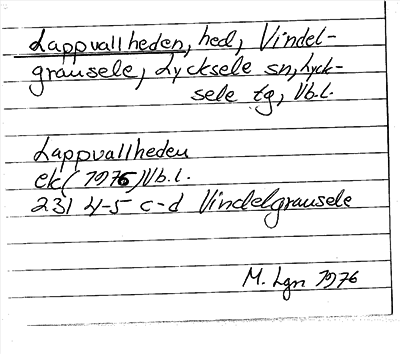 Lappvallheden, hed, Vindel-
gransele, Lycksele sn, Lyck-
sele tg, Vb.l.
Lappvallheden
ek (1976) Vb.l.
231 4-5 c-d Vindelgransele
M. Lgn 1976